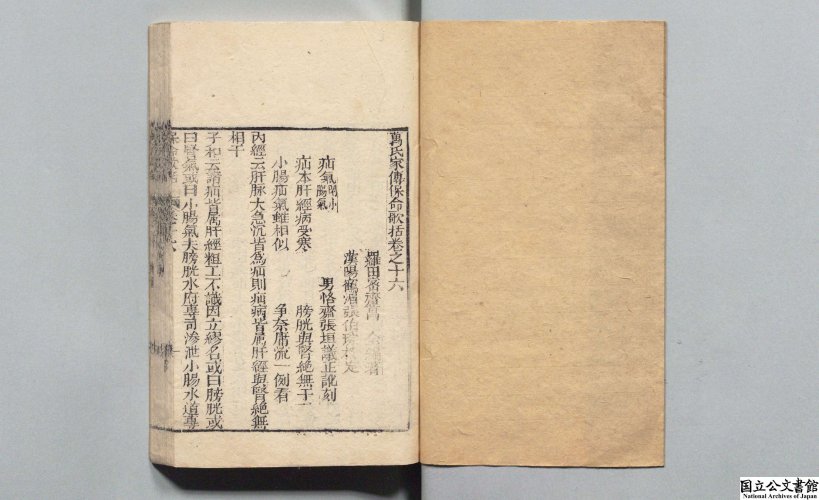 萬氏家傳保命歌括卷之十六
羅田密齋萬全著
漢陽鶴湄張伯琮校定
男恪齋張坦議正訛刻
疝氣附小腸氣
疝本肝經病受寒 膀胱與腎絶無干
小腸疝氣雖相似 争奈庸流一例看
內經云肝脉大急沉皆爲疝則疝病皆属肝經與腎絶無
相干
子和云諸疝皆属肝經粗工不識因立繆名或曰膀胱或
曰腎氣或曰小腸氣夫膀胱水府專司滲泄小腸水道專
国立公文書館
National Archives of Japan